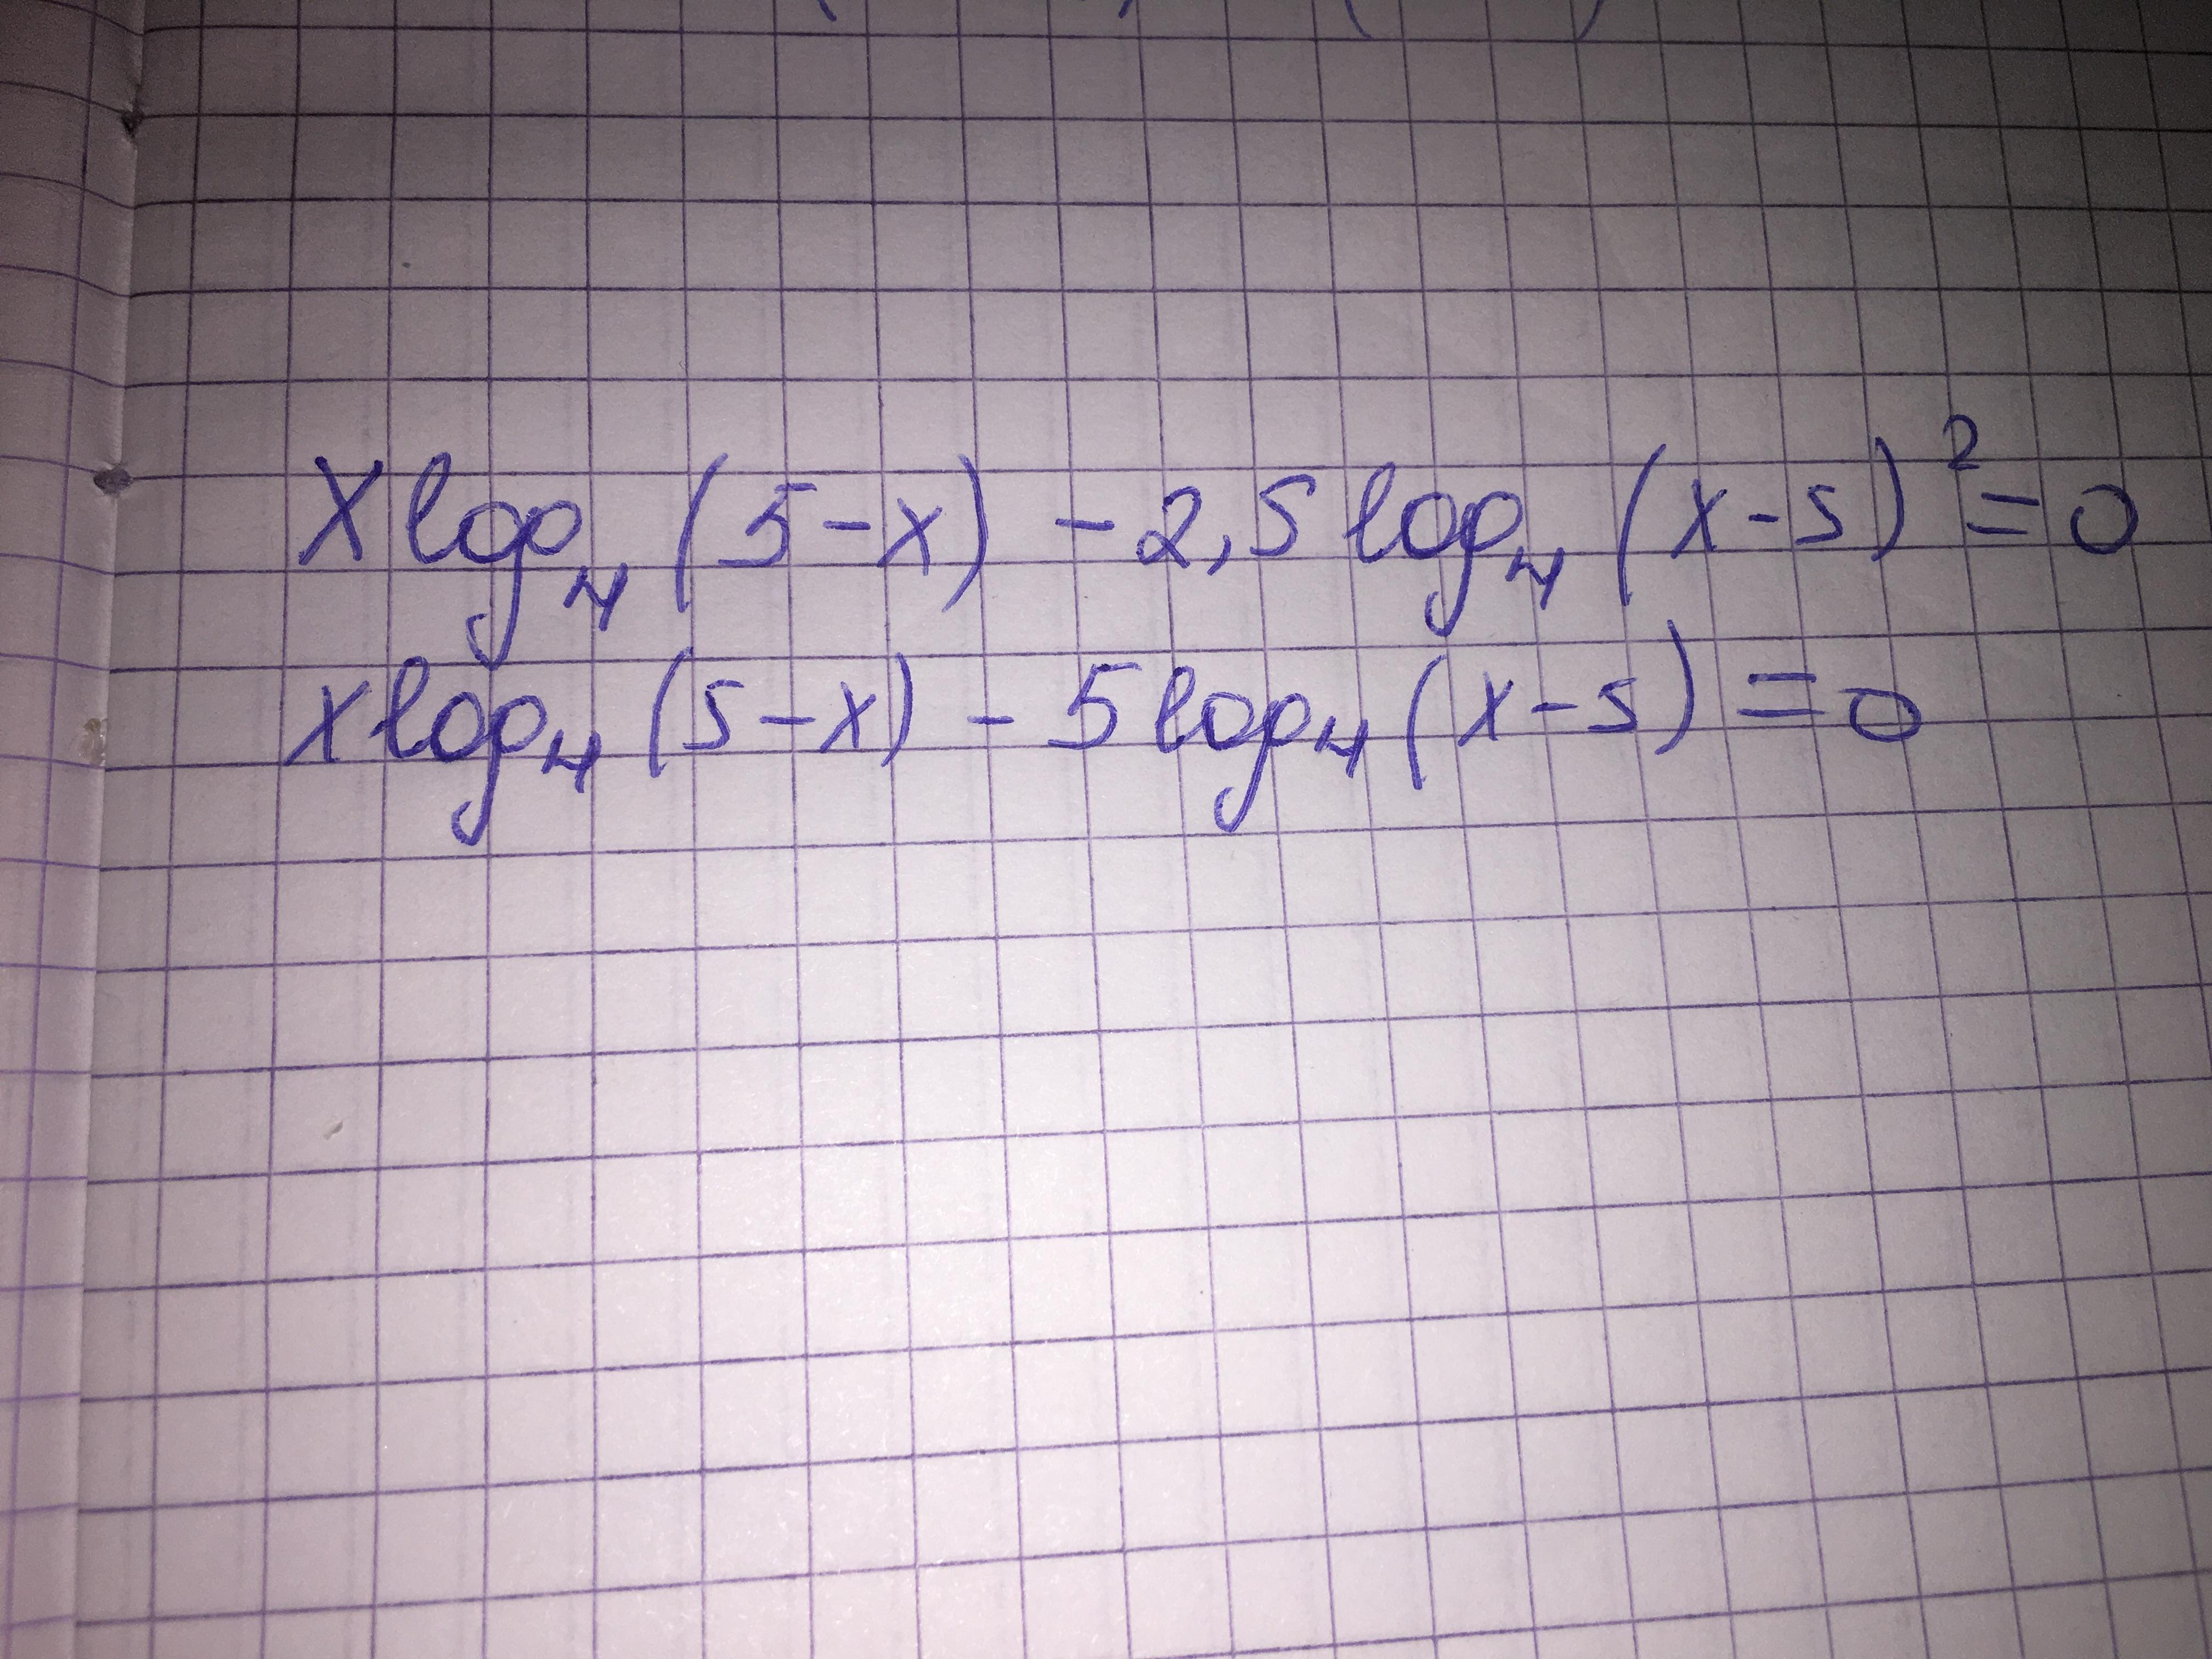 x log₄ (5-x) - 2,5 log₄ (x-5)² = 0
x log₄ (5-x) - 5 log₄ (x-5) = 0